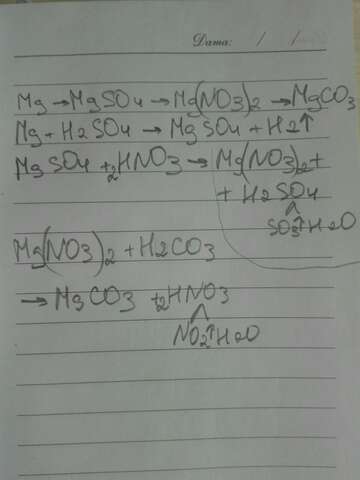 Дата: / /
Mg → MgSO4 → Mg(NO3)2 → MgCO3
Mg + H2SO4 → MgSO4 + H2↑
MgSO4 + 2HNO3 → Mg(NO3)2 +
+ H2SO4
SO3↑ H2O
Mg(NO3)2 + H2CO3
→ MgCO3 + 2HNO3
NO2↑ H2O